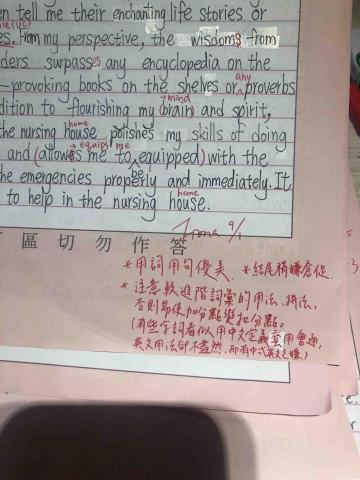 en tell me their enchanting life stories or
es. From my perspective, the wisdoms from
ders surpasses any encyclopedia on the
any
—provoking books on the shelves or proverbs
mind
dition to flourishing my (brain) and spirit,
home
the nursing house polishes my skills of doing
equips me
and (allowes me to be equipped) with the
the emergencies properly and immediately. It
home
to help in the nursing house.
9/1
區切勿作答
*用詞用句優美 *結尾稍嫌倉促
*注意較進階詞彙的用法、拼法,
否則易使加分點變扣分點。
(有些字詞看似用中文定義套用會通,
英文用法卻不盡然,而有中式英文之嫌)